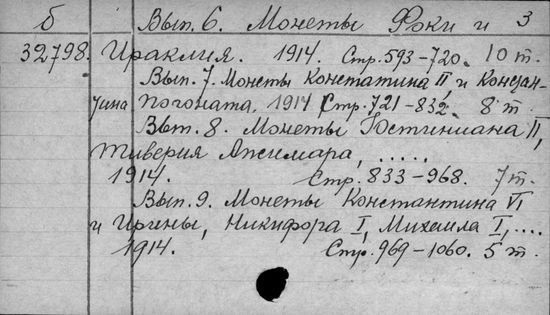 б Вып. 6. Монеты Фоки и 3
32798. Ираклия. 1914. Стр. 593-720. 10 т.
Вып. 7. Монеты Констатина II, и Констан-
тина Погоната. 1914 Стр. 721-832. 8 т.
Вып. 8. Монеты Юстиниана II,
Тиверия Апсимара, .....
1914. Стр. 833-968. 7 т.
Вып. 9. Монеты Константина VI,
и Ирены, Никифора I, Михаила I, ....
1914. Стр. 969-1060. 5 т.